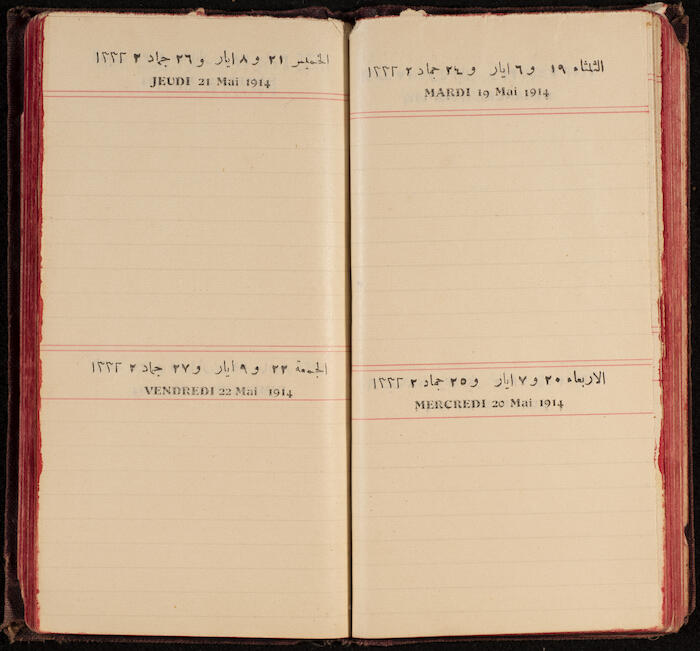 الثلثاء ١٩ و ٦ ايار و ٢٤ جماد ٢ ١٣٣٢
MARDI 19 Mai 1914
الاربعاء ٢٠ و ٧ ايار و ٢٥ جماد ٢ ١٣٣٢
MERCREDI 20 Mai 1914
الخميس ٢١ و ٨ ايار و ٢٦ جماد ٢ ١٣٣٢
JEUDI 21 Mai 1914
الجمعة ٢٢ و ٩ ايار و ٢٧ جماد ٢ ١٣٣٢
VENDREDI 22 Mai 1914